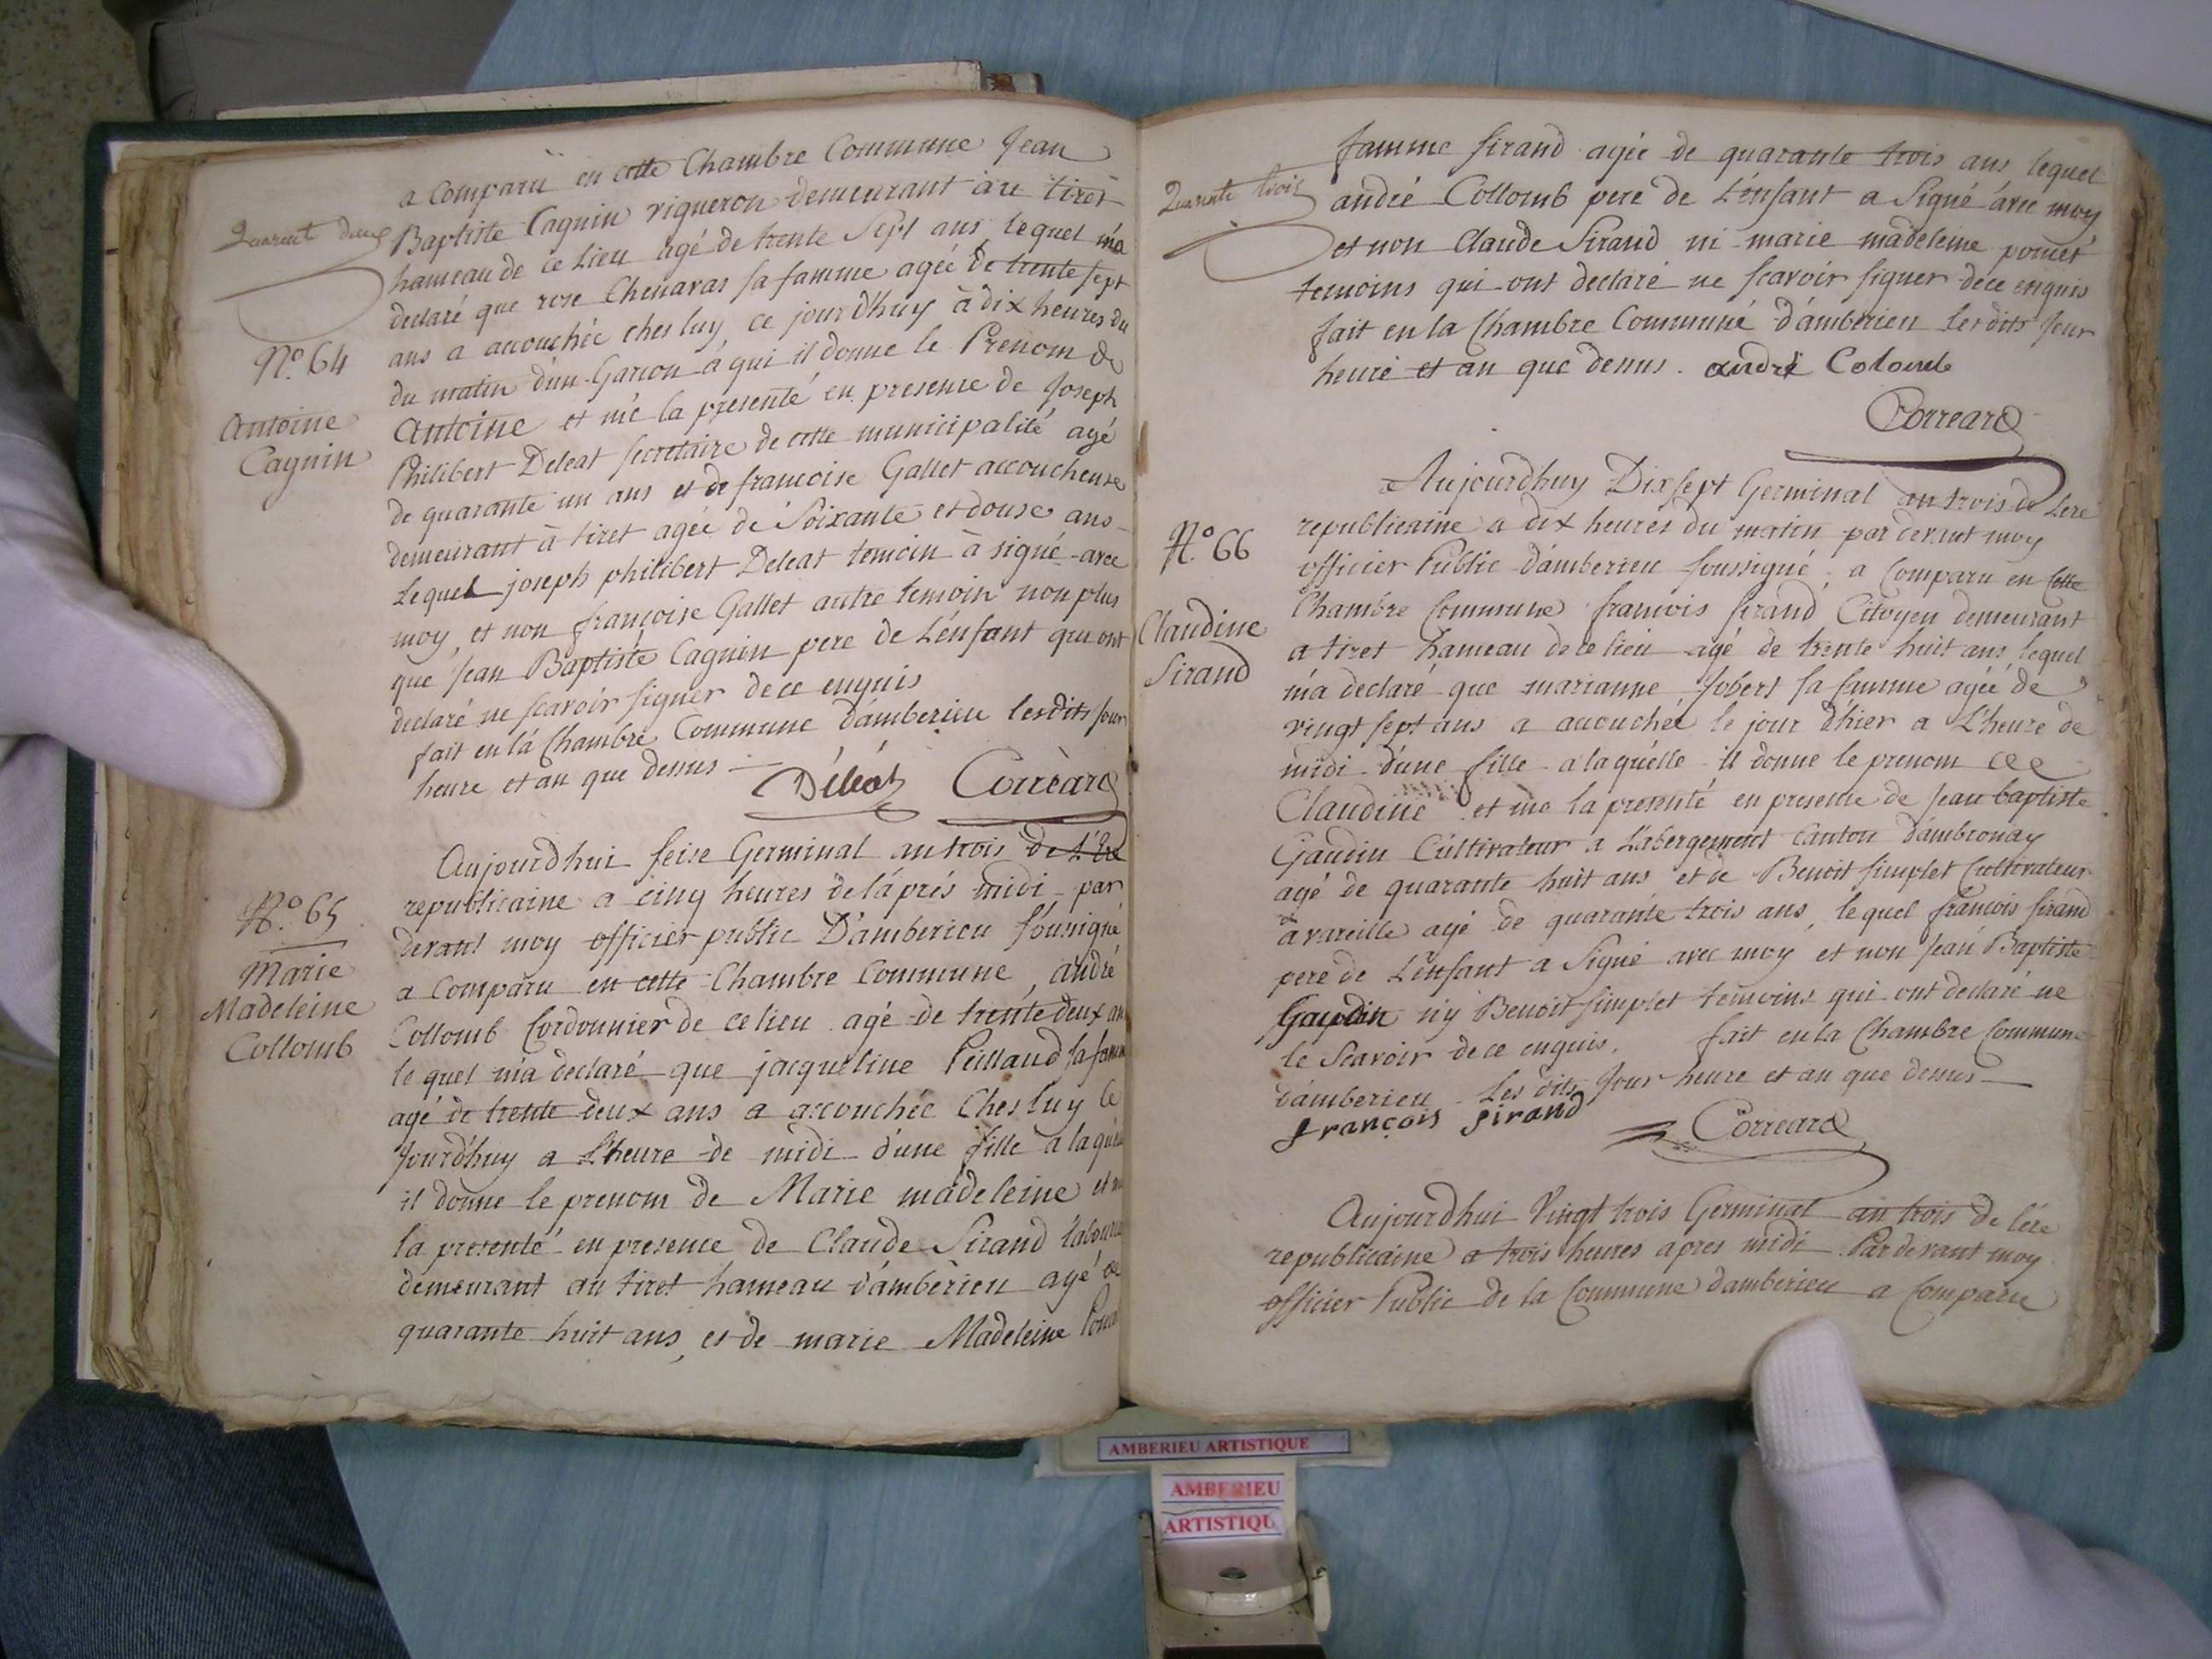 Quarente deux
a Comparu en cette Chambre Commune Jean
Baptiste Cagnin vigneron demeurant au tiret
hameau de ce Lieu agé de trente Sept ans, lequel m'a
declaré que rose Chenavas sa famme agée de trente sept
ans a accouchée ches luy ce jourd'huy à dix heures du
du matin d'un Garcon à qui il donne le Prenom de
Antoine et me la presenté en presence de Joseph
Philibert Deleat secretaire de cette municipalité agé
de quarante un ans et de francoise Gallet accoucheuse
demeurant à tiret agée de Soixante et douse ans
Lequel joseph philibert Deleat temoin à signé avec
moy, et non françoise Gallet autre temoin non plus
que Jean Baptiste Cagnin pere de L'énfant qui ont
declaré ne scavoir signer de ce enquis
fait en la Chambre Commune d'amberieu lesdits Jour
heure et an que dessus
Déléat Corréard
N.º 64
Antoine
Cagnin
Aujourd'hui seise Germinal an trois de L'Ere
republicaine a cinq heures de l'aprés midi par
devant moy officier public D'amberieu soussigné
a Comparu en cette Chambre Commune, andré
Collomb Cordonnier de ce lieu agé de trente deux ans
le quel m'a declaré que jacqueline Peillaud sa famme
agé de trente deux ans a accouchée Ches luy le
Jourd'huy a L'heure de midi d'une fille a laquelle
il donne le prenom de Marie madeleine et me
la presenté en presence de Claude Sirand laboureur
demeurant au tiret hameau d'ambérieu agé de
quarante huit ans, et de marie Madeleine
N.º 65
Marie
Madeleine
Collomb
Quarente trois
famme Sirand agée de quarante trois ans lequel
andré Collomb pere de L'énfant a Signé avec moy
et non Claude Sirand ni marie madeleine pomet
temoins qui ont declaré ne scavoir signer de ce enquis
fait en la Chambre Commune d'amberieu les dits Jour
heure et an que dessus. andré Colomb
Correard
Aujourdhuy Dix sept Germinal an trois de Lere
republicaine a dix heures du matin par devant moy
officier Public d'amberieu soussigné, a Comparu en Cette
Chambre Commune francois Sirand Citoyen demeurant
a tiret hameau de ce lieu agé de trente huit ans, lequel
m'a declaré que marianne Jobert sa famme agée de
vingt sept ans a accouchée le jour d'hier a L'heure de
midi d'une fille a laquelle il donne le prenom de
Claudine et me la presenté en presence de Jean baptiste
Gaudin Cultivateur a L'abergement Canton d'ambronay
agé de quarante huit ans et de Benoit simplet Cultivateur
a vareille agé de quarante trois ans, lequel francois Sirand
pere de L'énfant a Signé avec moy et non Jean Baptiste
Gaudin n'y Benoit simplet temoins qui ont declaré ne
le Scavoir de ce enquis. fait en la Chambre Commune
d'amberieu Les dits Jour heure et an que dessus
françois sirand
Correard
N.º 66
Claudine
Sirand
Aujourdhui Vingt trois Germinal an trois de l'ére
republicaine a trois heures apres midi Pardevant moy
officier Public de la Commune damberieu a Comparu
AMBERIEU ARTISTIQUE
AMBERIEU
ARTISTIQU